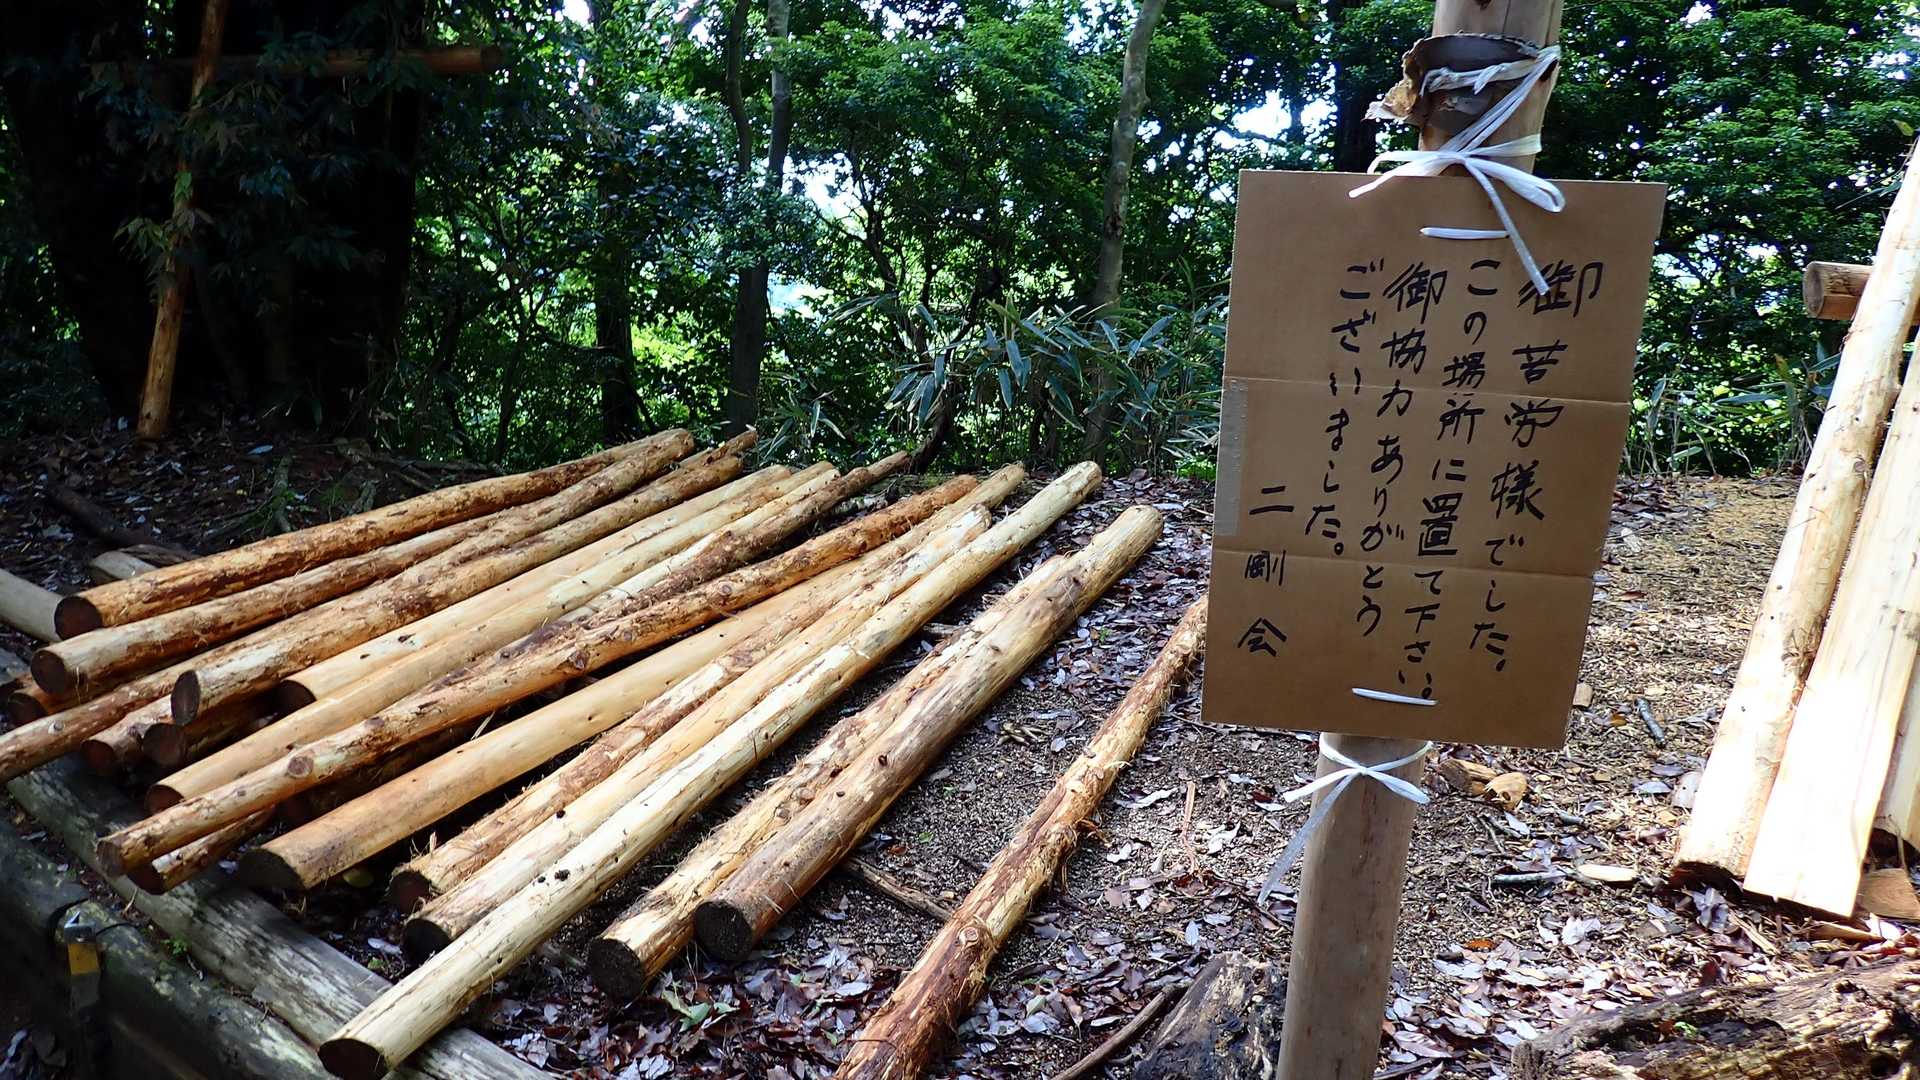 御苦労様でした。
この場所に置て下さい。
御協力ありがとう
ございました。
二剛会